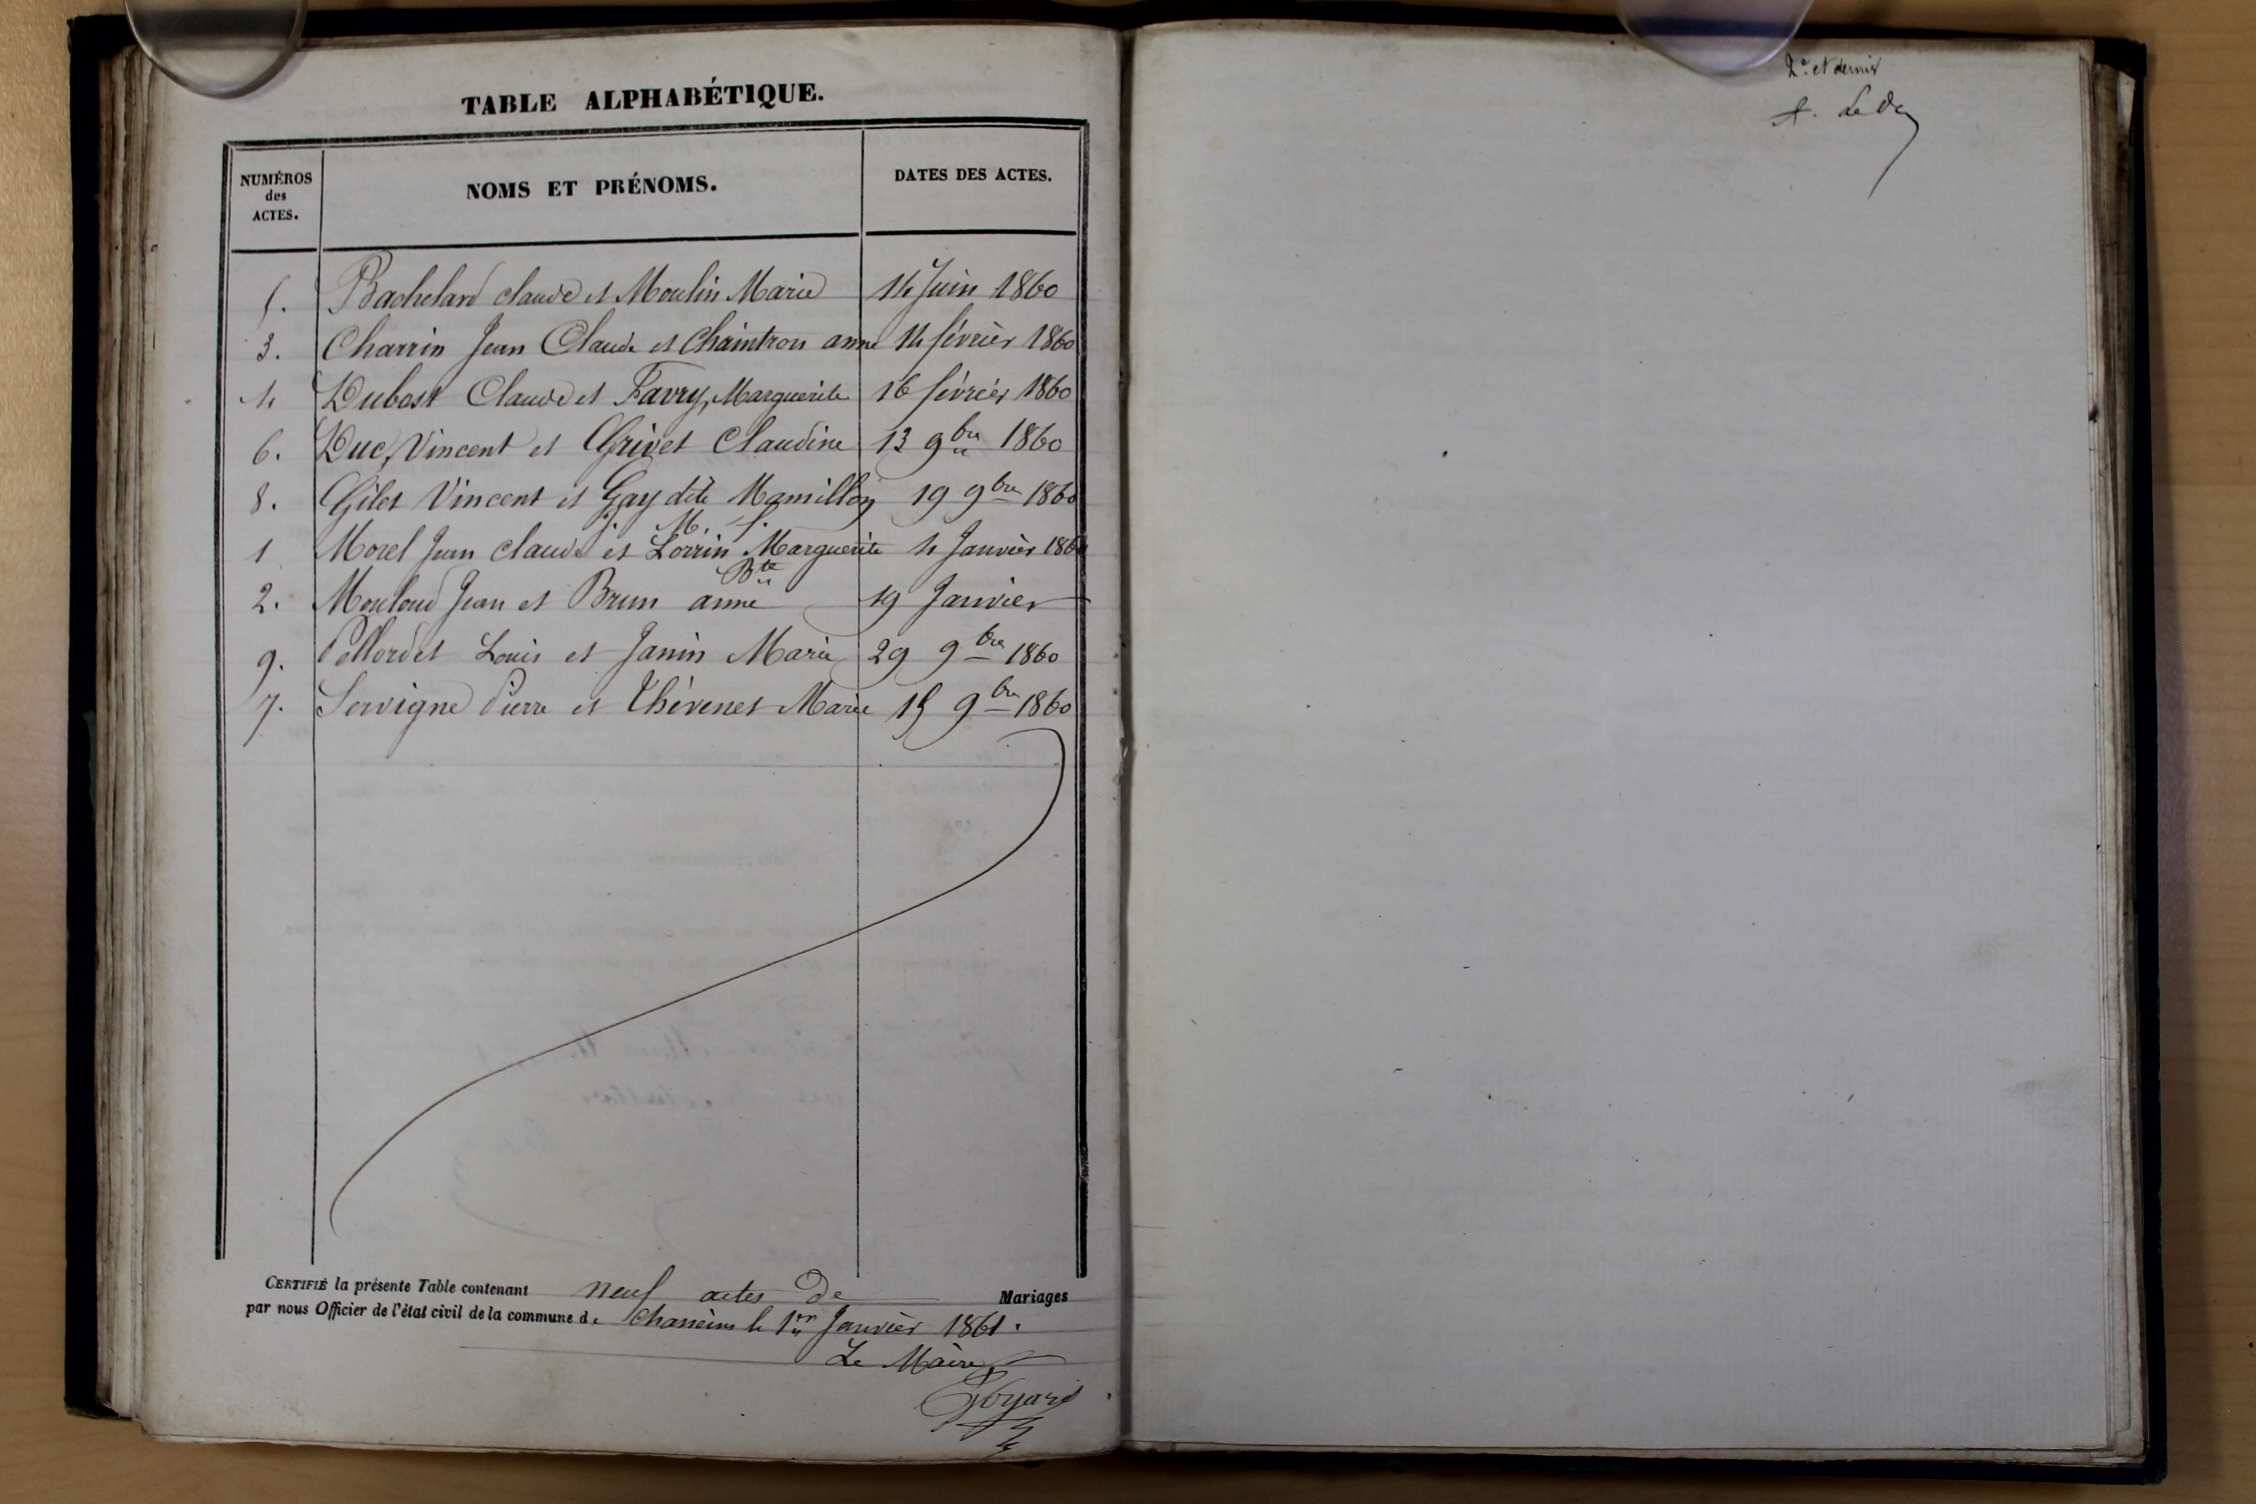 TABLE ALPHABÉTIQUE.
NUMÉROS
des
ACTES.
NOMS ET PRÉNOMS.
DATES DES ACTES.
5. Bachelard Claude et Moulin Marie 14 Juin 1860
3. Charrin Jean Claude et Chaintron anne 14 février 1860
4 Dubost Claude et Favry, Marguerite 16 février 1860
6. Duc, Vincent et Grivet Claudine 13 9bre 1860
8. Gilet Vincent et Gay dite Mamillon 19 9bre 1860
J. M. F.
1 Morel Jean Claude et Lorrin Marguerite 4 Janvier 1860
Bte
2. Mouloud Jean et Brun anne 19 Janvier
9. Pollordet Louis et Janin Marie 29 9bre 1860
7. Servigne Pierre et Thévenet Marie 15 9bre 1860
CERTIFIÉ la présente Table contenant neuf actes de Mariages
par nous Officier de l'état civil de la commune de Chaneins le 1er Janvier 1861.
Le Maire
2e et dernier